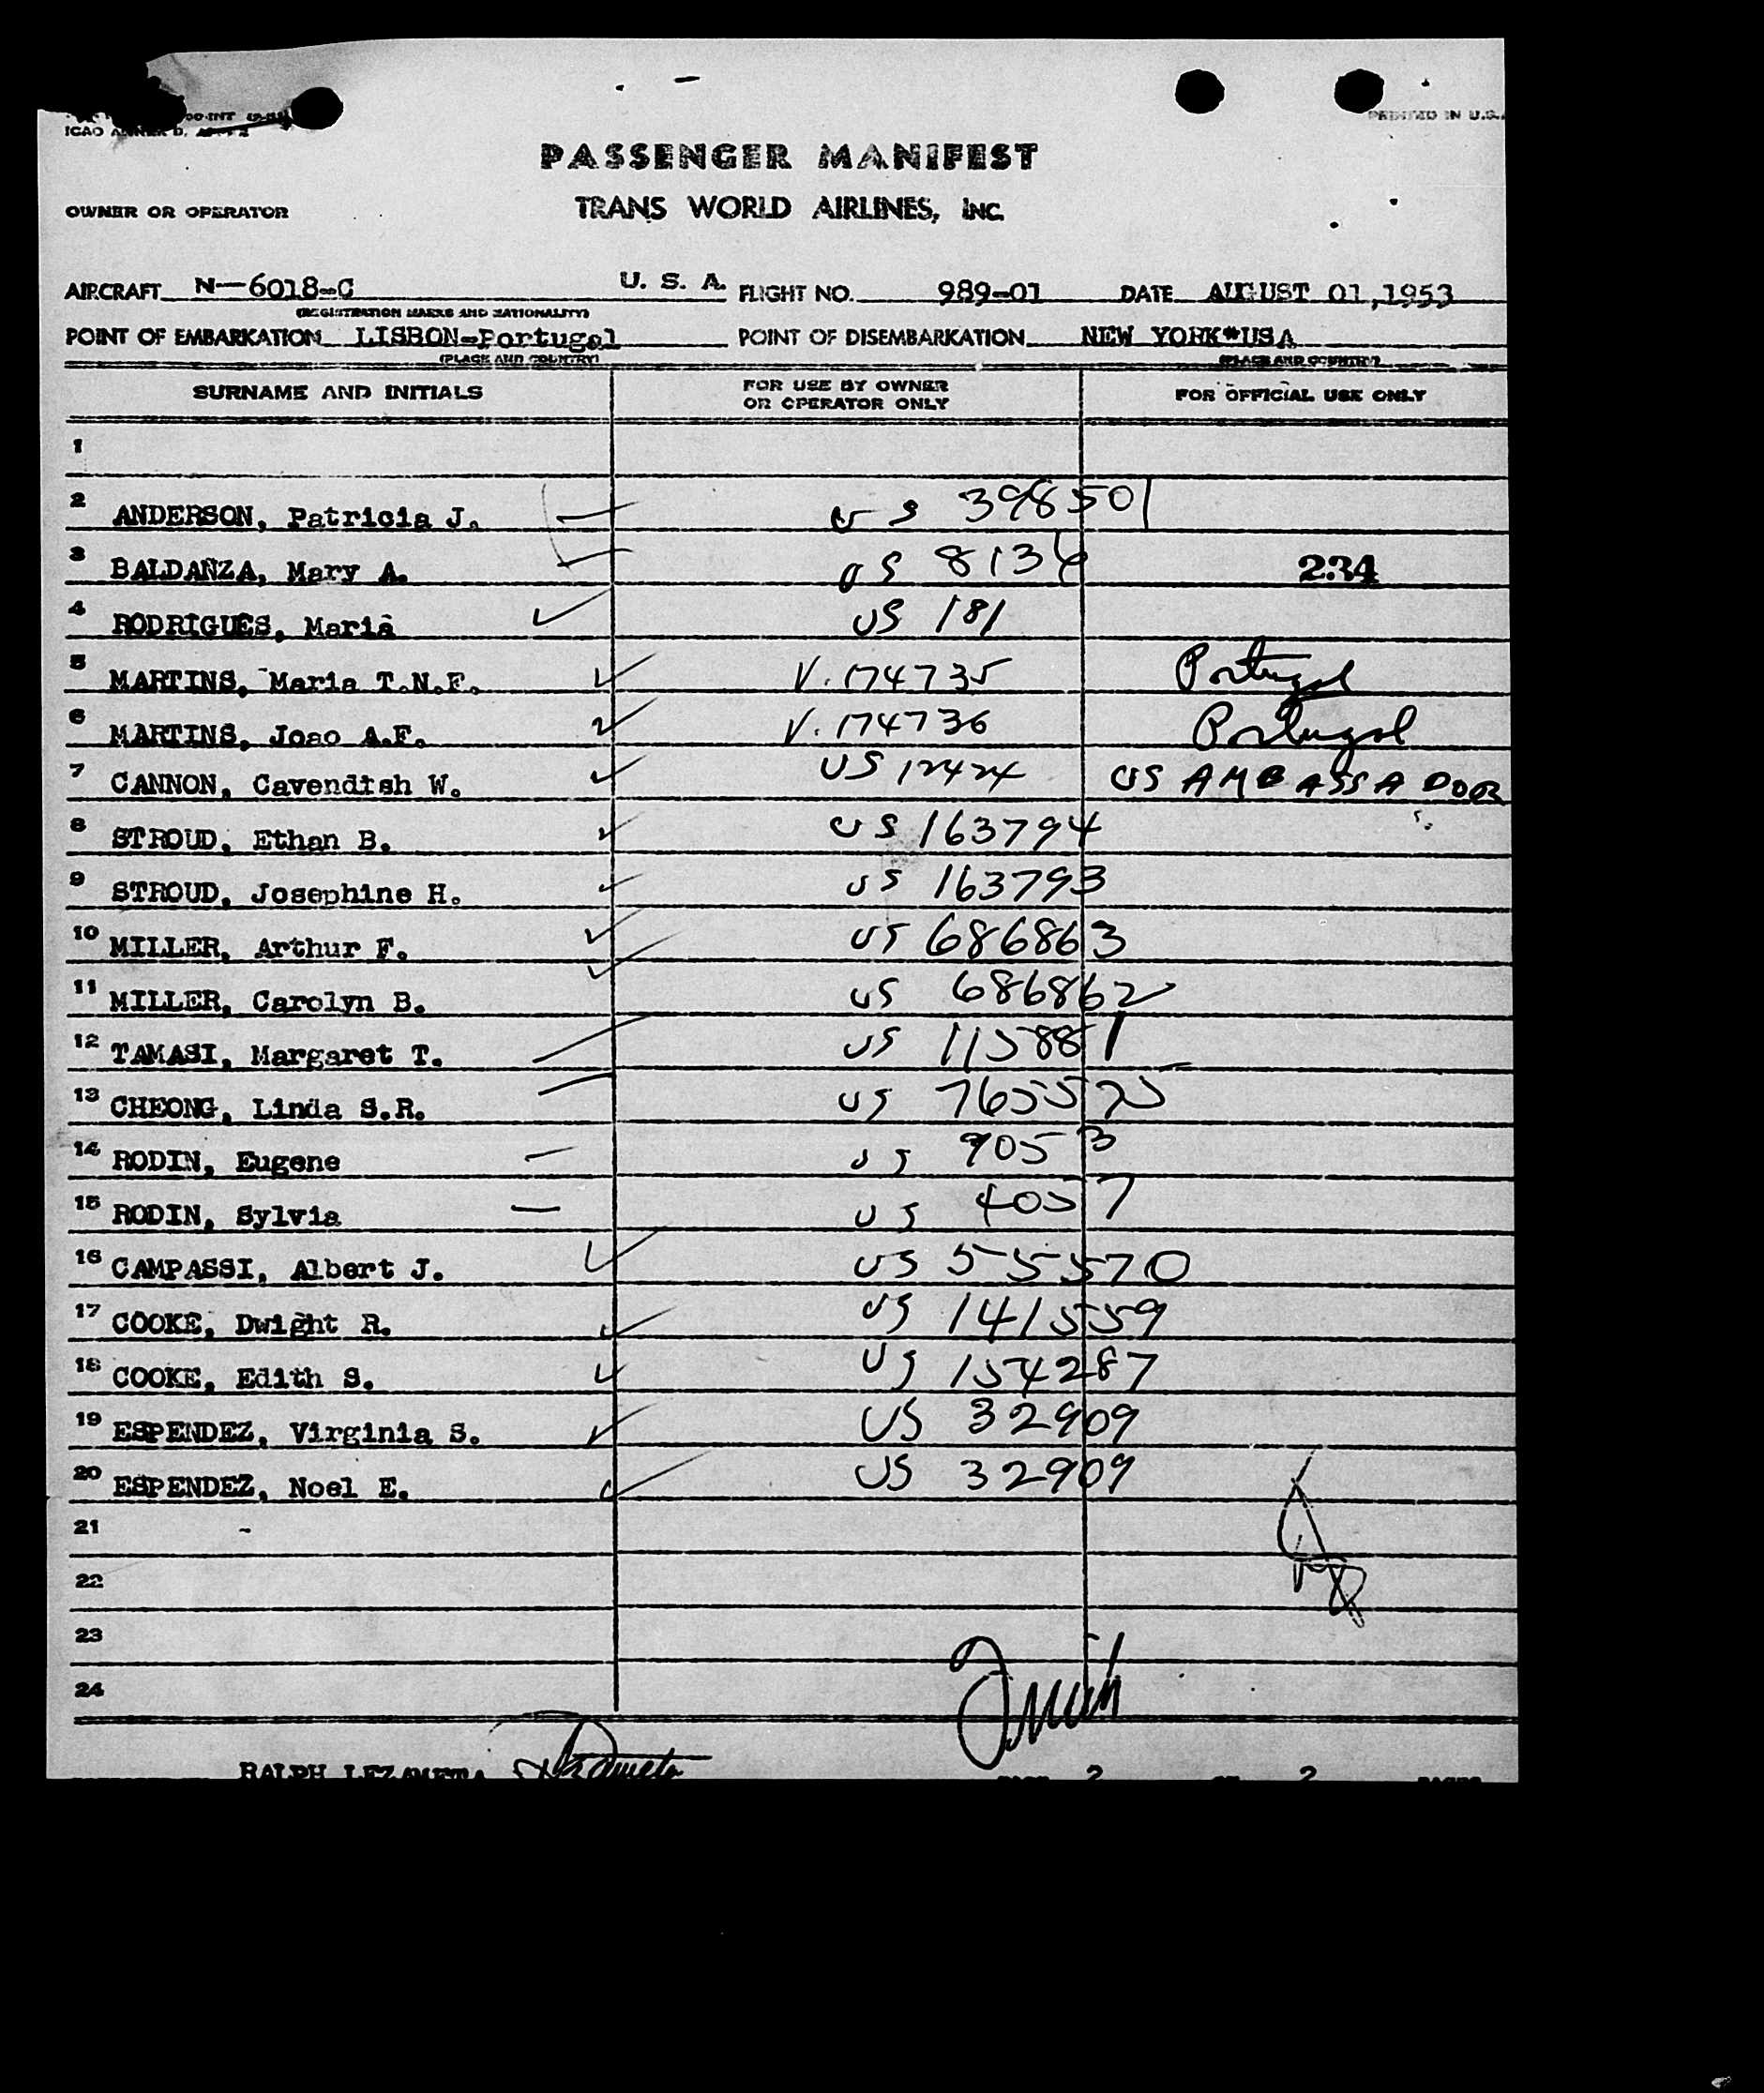 ICAO ANNEX 9,
PRINTED IN U.S.
PASSENGER MANIFEST
OWNER OR OPERATOR TRANS WORLD AIRLINES, INC.
AIRCRAFT N-6018-C U. S. A. FLIGHT NO. 989-01 DATE AUGUST 01,1953
(REGISTRATION MARKS AND NATIONALITY)
POINT OF EMBARKATION LISBON-Portugal POINT OF DISEMBARKATION NEW YORK*USA
(PLACE AND COUNTRY) (PLACE AND COUNTRY)
SURNAME AND INITIALS FOR USE BY OWNER OR OPERATOR ONLY FOR OFFICIAL USE ONLY
1
2 ANDERSON, Patricia J. US 398501
3 BALDANZA, Mary A. US 8136 234
4 RODRIGUES, Maria US 181
5 MARTINS, Maria T.N.F. V. 174735 Portugal
6 MARTINS, Joao A.F. V. 174736 Portugal
7 CANNON, Cavendish W. US 12424 US AMBASSADOR
8 STROUD, Ethan B. US 163794
9 STROUD, Josephine H. US 163793
10 MILLER, Arthur F. US 686863
11 MILLER, Carolyn B. US 686862
12 TAMASI, Margaret T. US 115881
13 CHEONG, Linda S.R. US 765525
14 RODIN, Eugene US 9053
15 RODIN, Sylvia US 4057
16 CAMPASSI, Albert J. US 555570
17 COOKE, Dwight R. US 141559
18 COOKE, Edith S. US 154287
19 ESPENDEZ, Virginia S. US 32909
20 ESPENDEZ, Noel E. US 32909
21
22
23
24
RALPH LEZAMETA PAGE 2 OF 2 PAGES